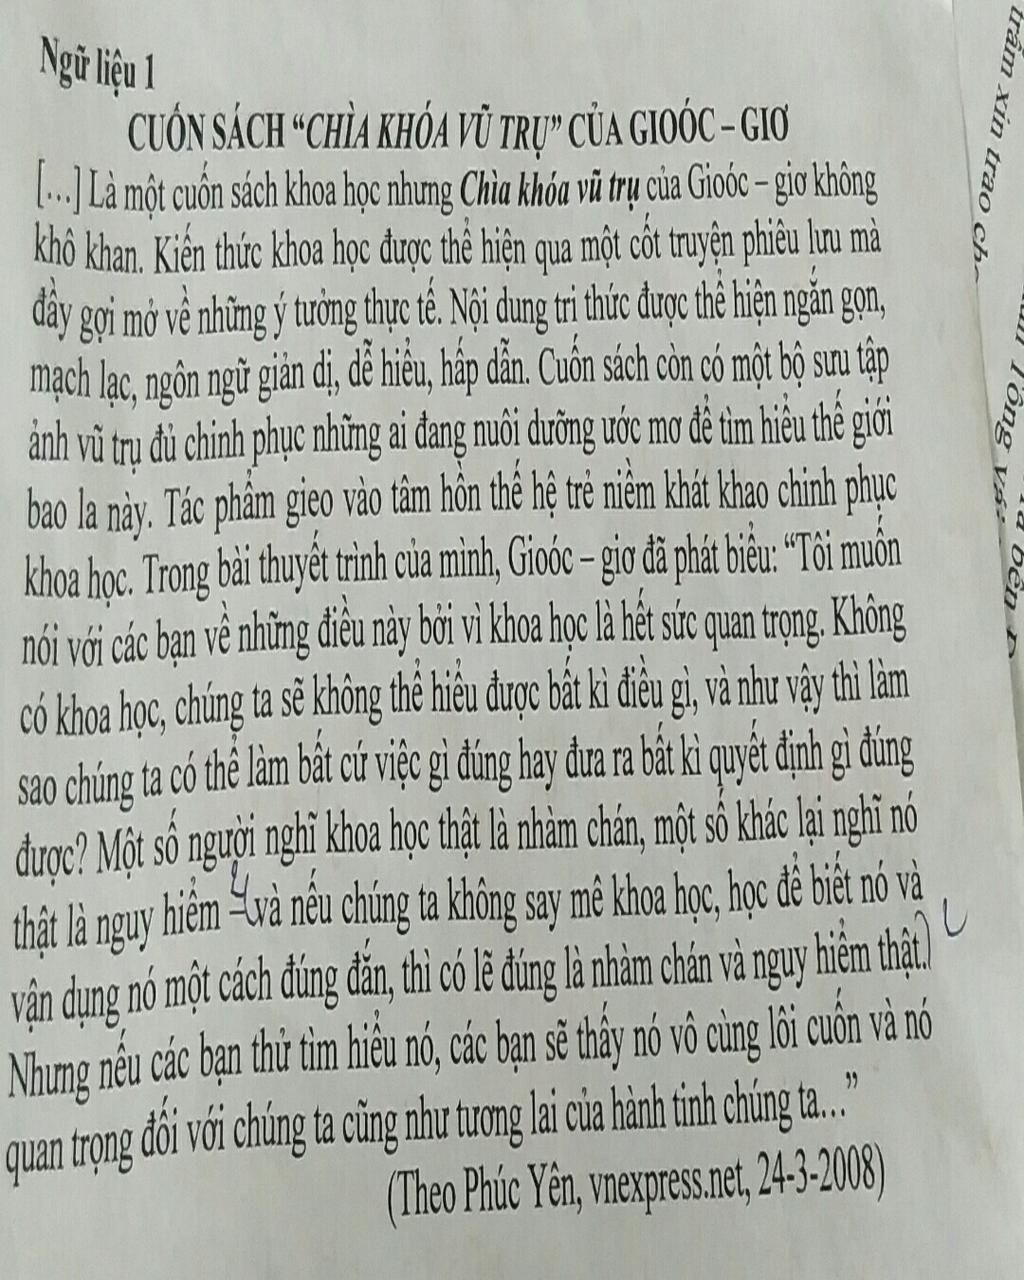 Ngữ liệu 1
CUỐN SÁCH “CHÌA KHÓA VŨ TRỤ” CỦA GIOÓC – GIƠ
[...] Là một cuốn sách khoa học nhưng Chìa khóa vũ trụ của Gioóc – giơ không
khô khan. Kiến thức khoa học được thể hiện qua một cốt truyện phiêu lưu mà
đầy gợi mở về những ý tưởng thực tế. Nội dung tri thức được thể hiện ngắn gọn,
mạch lạc, ngôn ngữ giản dị, dễ hiểu, hấp dẫn. Cuốn sách còn có một bộ sưu tập
ảnh vũ trụ đủ chinh phục những ai đang nuôi dưỡng ước mơ để tìm hiểu thế giới
bao la này. Tác phẩm gieo vào tâm hồn thế hệ trẻ niềm khát khao chinh phục
khoa học. Trong bài thuyết trình của mình, Gioóc – giơ đã phát biểu: “Tôi muốn
nói với các bạn về những điều này bởi vì khoa học là hết sức quan trọng. Không
có khoa học, chúng ta sẽ không thể hiểu được bất kì điều gì, và như vậy thì làm
sao chúng ta có thể làm bất cứ việc gì đúng hay đưa ra bất kì quyết định gì đúng
được? Một số người nghĩ khoa học thật là nhàm chán, một số khác lại nghĩ nó
thật là nguy hiểm – và nếu chúng ta không say mê khoa học, học để biết nó và
vận dụng nó một cách đúng đắn, thì có lẽ đúng là nhàm chán và nguy hiểm thật.
Nhưng nếu các bạn thử tìm hiểu nó, các bạn sẽ thấy nó vô cùng lôi cuốn và nó
quan trọng đối với chúng ta cũng như tương lai của hành tinh chúng ta...”
(Theo Phúc Yên, vnexpress.net, 24-3-2008)
xin trao